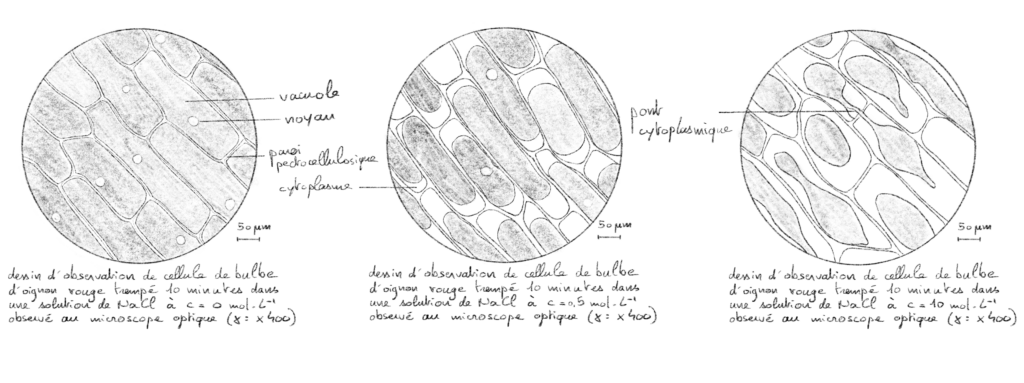 vacuole
noyau
paroi
pectocellulosique
cytoplasme
pont
cytoplasmique
50 µm
50 µm
50 µm
dessin d'observation de cellule de bulbe
d'oignon rouge trempé 10 minutes dans
une solution de NaCl à c = 0 mol.L⁻¹
observé au microscope optique (γ: x400)
dessin d'observation de cellule de bulbe
d'oignon rouge trempé 10 minutes dans
une solution de NaCl à c = 0,5 mol.L⁻¹
observé au microscope optique (γ: x400)
dessin d'observation de cellule de bulbe
d'oignon rouge trempé 10 minutes dans
une solution de NaCl à c = 10 mol.L⁻¹
observé au microscope optique (γ: x400)